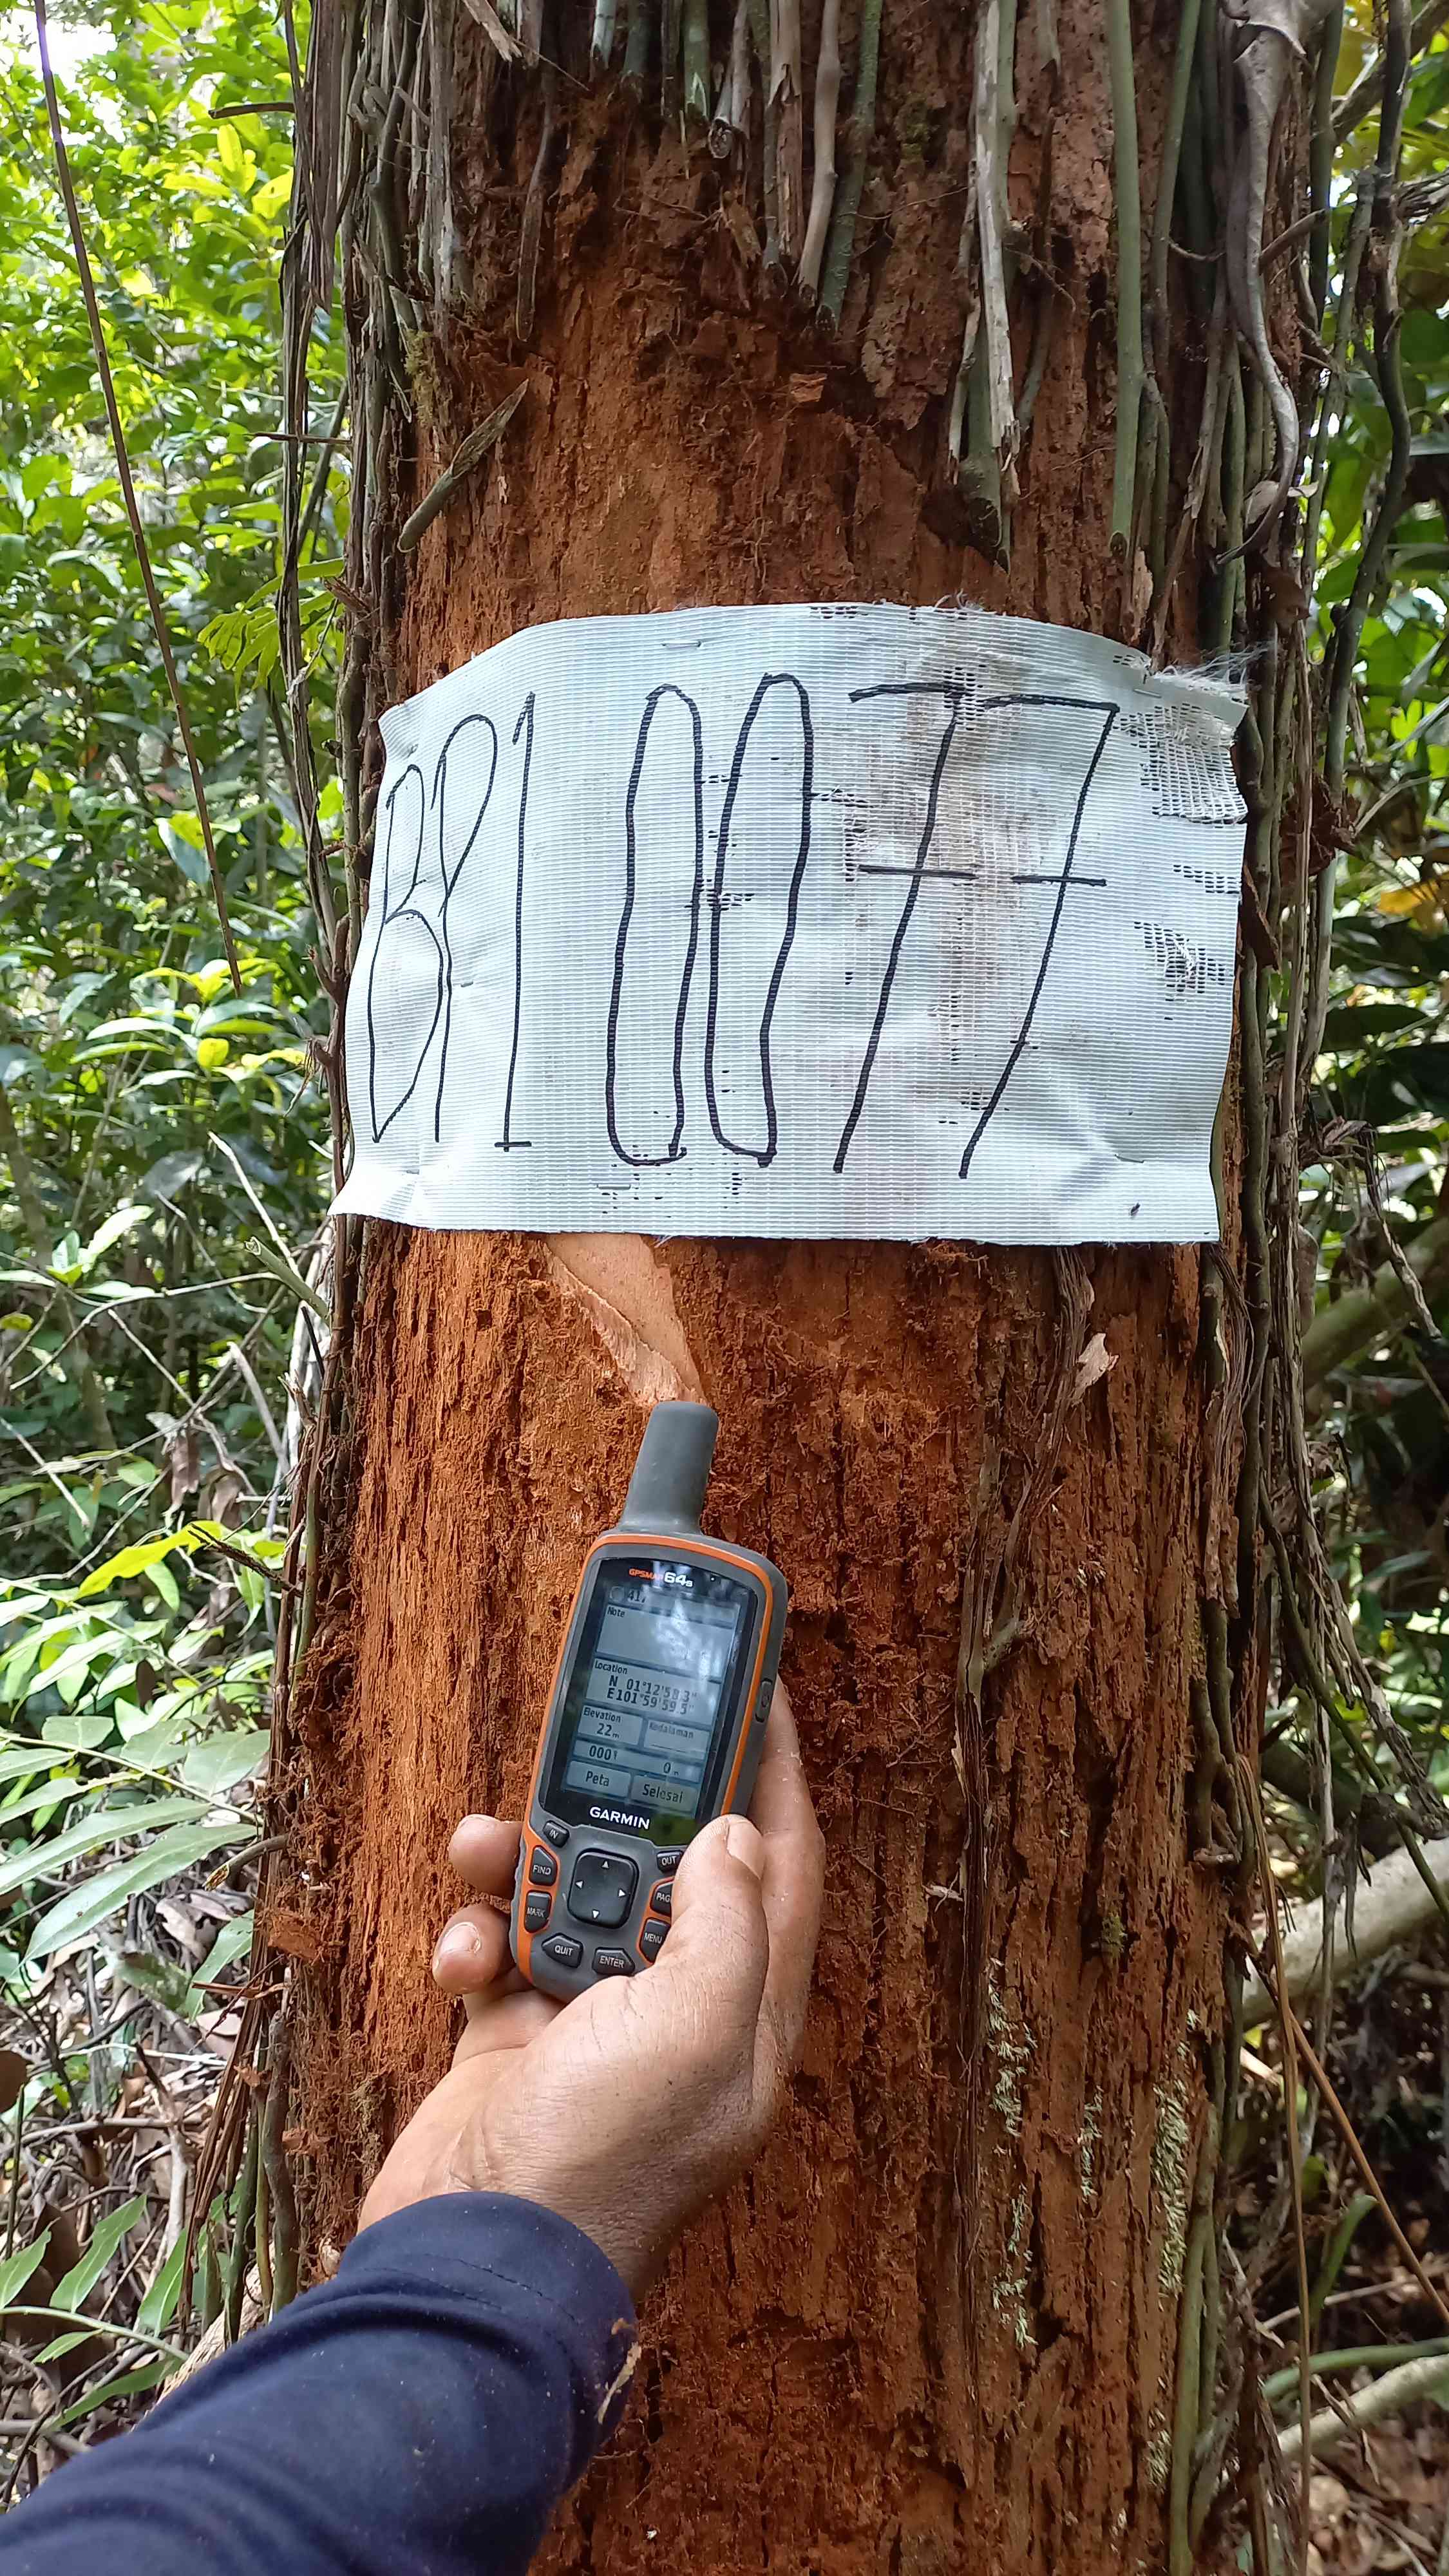 BP1 0077
GPSMAP 64s
417
Note
Location
N 01°12'58.3"
E101°59'59.5"
Elevation
Kedalaman
22m
0m
Peta
Selesai
GARMIN
IN
OUT
FIND
MARK
MENU
QUIT
ENTER